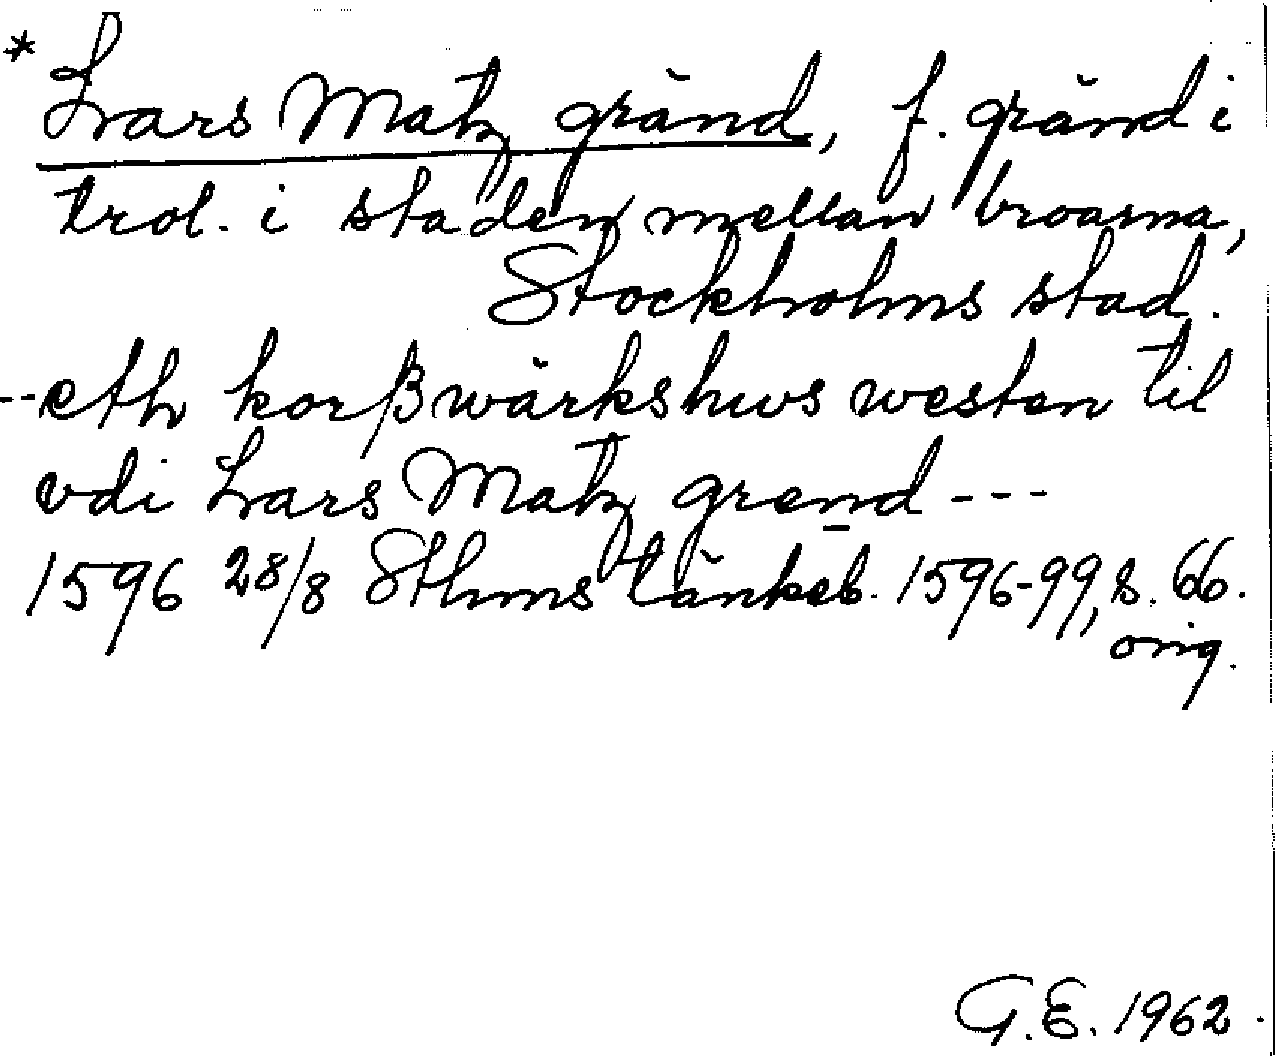 * Lars Matz gränd, f. gränd i
trol. i staden mellan broarna,
Stockholms stad.
--eth korßwärkshws westen til
vdi Lars Matz grend ---
1596 28/8 Sthms tänkeb. 1596-99, s. 66.
orig.
G.E. 1962.